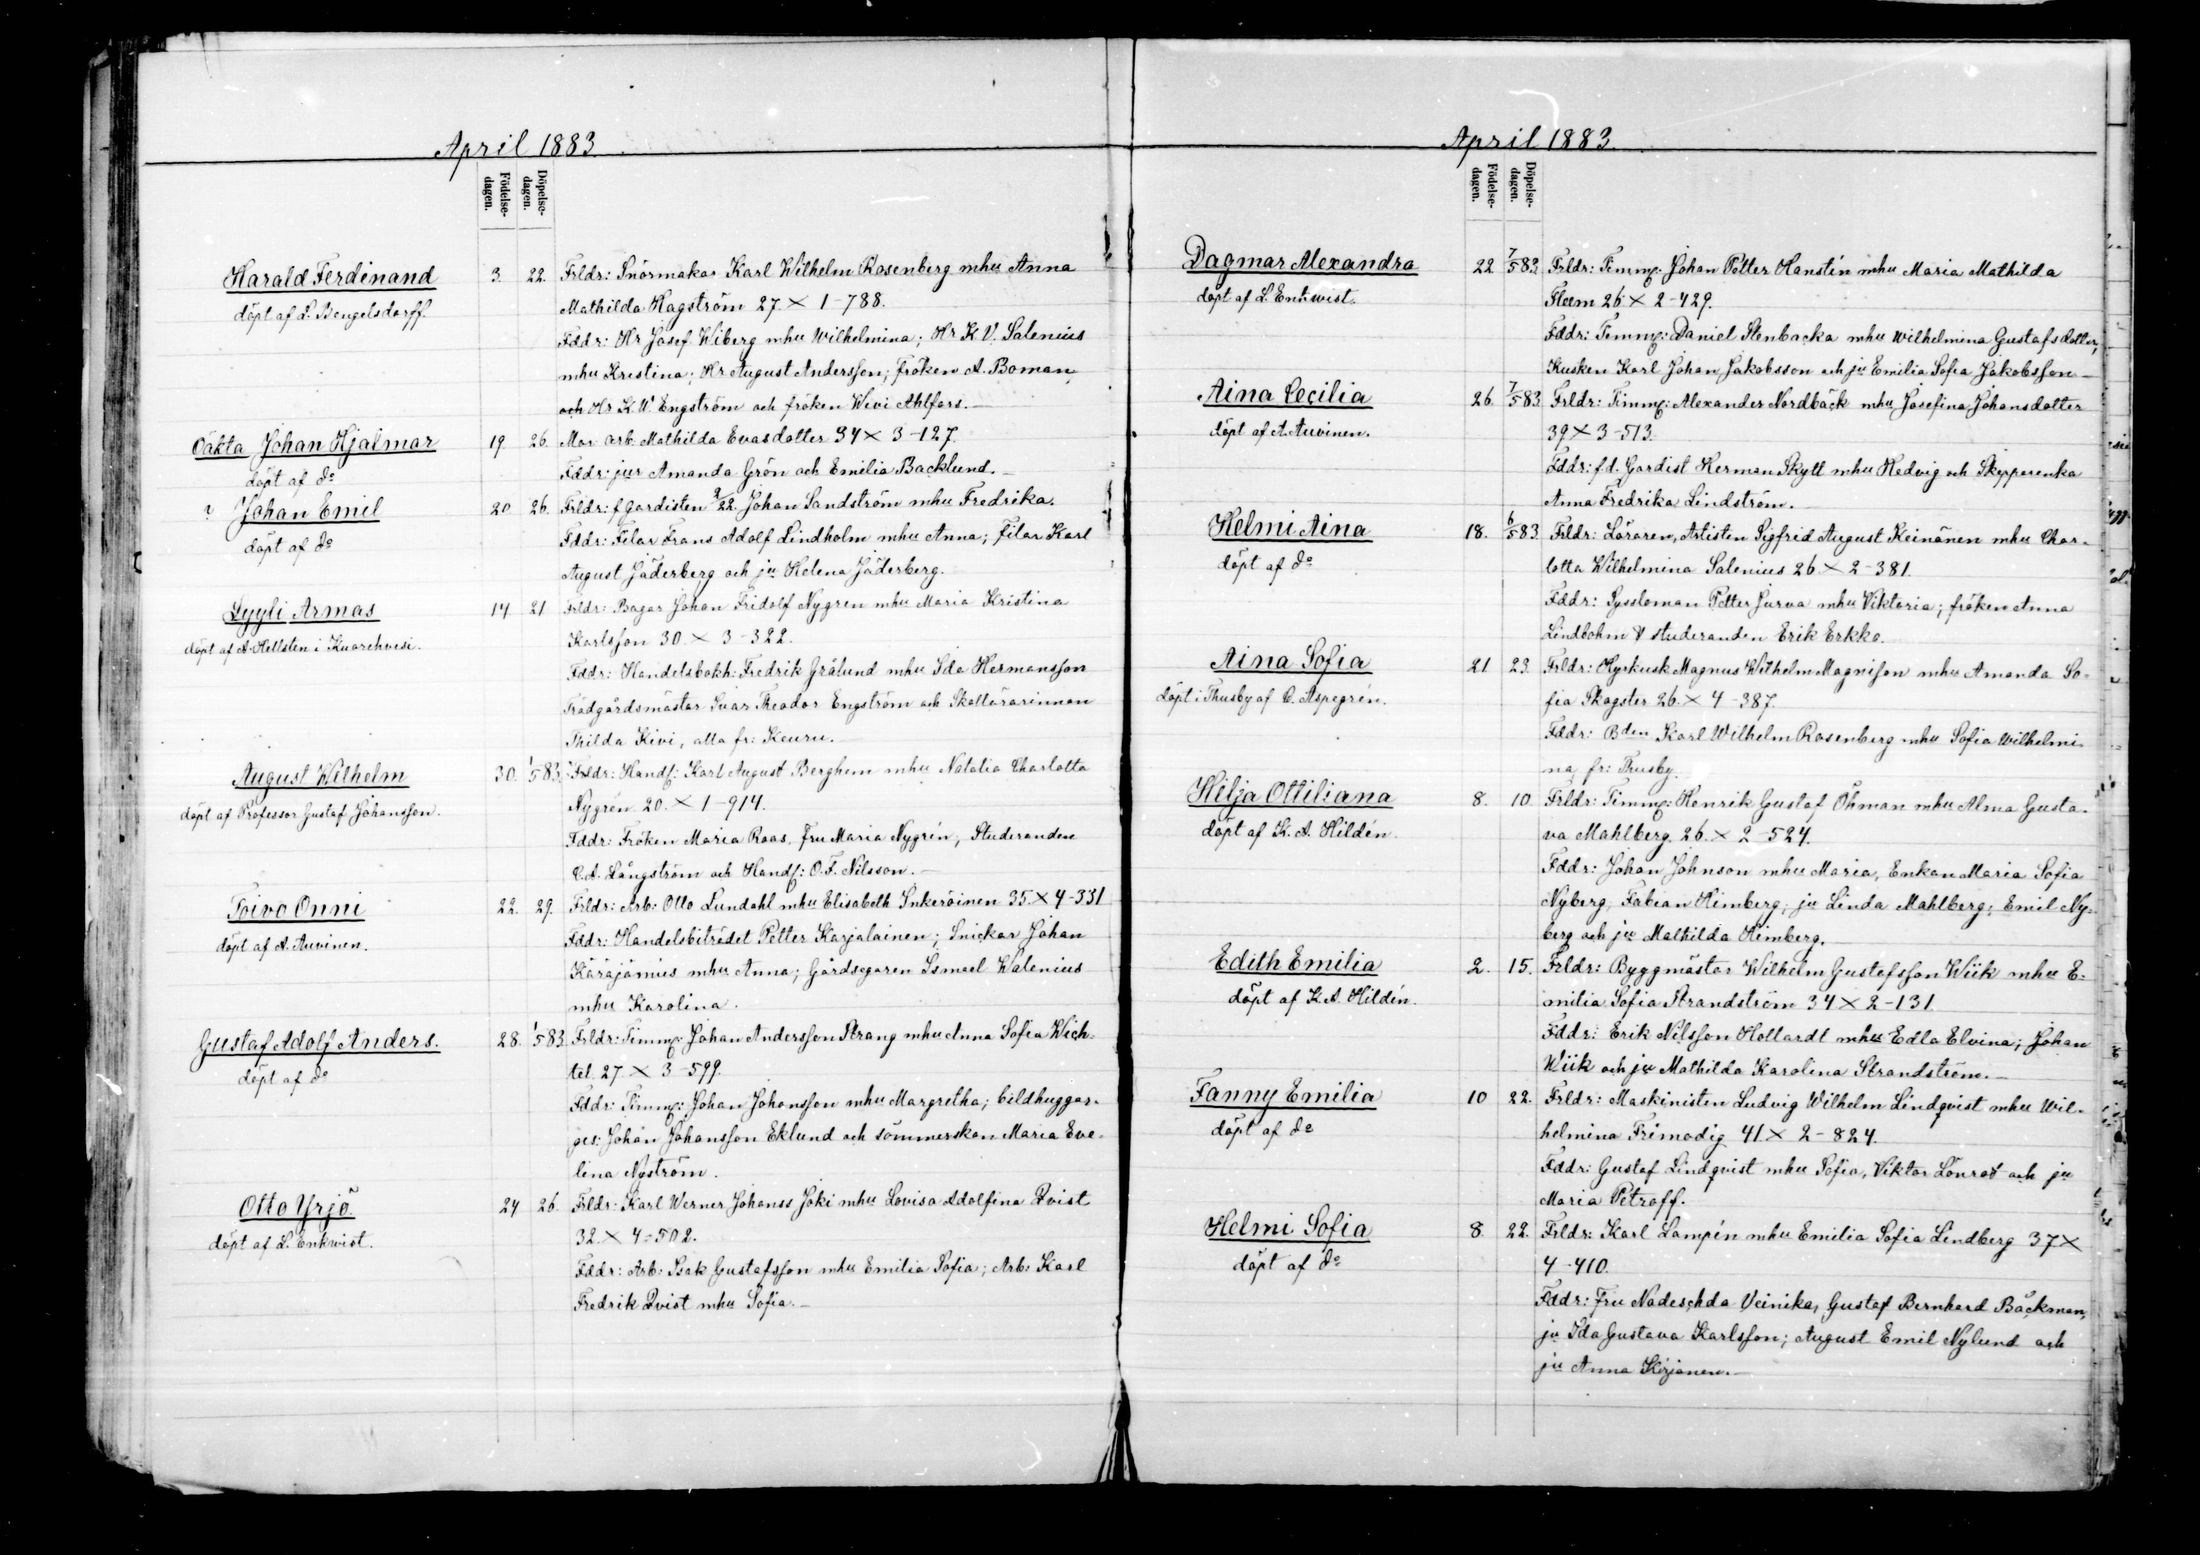 April 1883
Födelse-dagen.
Döpelse-dagen.
Harald Ferdinand 3. 22. Frldr: Snörmakar Karl Wilhelm Rosenberg mhu Anna
döpt af L. Bengelsdorff. Mathilda Hagström 27 × 1-788.
Fddr: Hr Josef Wiberg mhu Wilhelmina; Hr K V. Salenius
mhu Kristina; Hr August Andersson; fröken A. Boman
och Hr K. W. Engström och fröken Wivi Ahlfors.
Oäkta Johan Hjalmar 19. 26. Mor arb. Mathilda Evasdotter 34 × 3-127.
döpt af do Fddr: jur Amanda Grön och Emilia Backlund.
? Johan Emil 20. 26. Frldr: f gardisten 2/22. Johan Sandström mhu Fredrika.
döpt af do Fddr: Filar Frans Adolf Lindholm mhu Anna; Filar Karl
August Jäderberg och ju Helena Jäderberg.
Lyyli Armas 14 21 Frldr: Bagar Johan Fridolf Nygren mhu Maria Kristina
döpt af A. Hellsten i Kuorehvesi. Karlsson 30 × 3-322.
Fddr: Handelsbokh: Fredrik Grålund mhu Ida Hermansson
Trädgårdsmästar Ivar Theodor Engström och Skollärarinnan
Thilda Kivi, alla fr: Keuru.
August Wilhelm 30. 1/5 83. Frldr: Handl: Karl August Berghem mhu Natalia Charlotta
döpt af Professor Gustaf Johansson. Nygrén 20. × 1-914.
Fddr: Fröken Maria Roos, fru Maria Nygrén, Studeranden
C. A. Långström och Handl: O. F. Nilsson.
Toivo Onni 22. 29. Frldr: Arb: Otto Lundahl mhu Elisabeth Inkeröinen 35. × 4-331
döpt af A. Auvinen. Fddr: Handelsbiträdet Petter Karjalainen; Snickar Johan
Käräjämies mhu Anna; Gårdsegaren Ismael Walenius
mhu Karolina.
Gustaf Adolf Anders. 28. 1/5 83. Frldr: Timmn: Johan Andersson Strang mhu Anna Sofia Wich-
döpt af do tel 27. × 3-599.
Fddr: Timmn: Johan Johansson mhu Margretha; bildhuggar-
ges: Johan Johansson Eklund och sömmerskan Maria Eve-
lina Nyström.
Otto Yrjö 24 26. Frldr: Karl Werner Johanss Joki mhu Lovisa Adolfina Qvist
döpt af L. Enkwist. 32. × 4-502.
Fddr: Arb: Isak Gustafsson mhu Emilia Sofia; Arb: Karl
Fredrik Qvist mhu Sofia.
April 1883.
Födelse-dagen.
Döpelse-dagen.
Dagmar Alexandra 22 7/5 83. Frldr: Timmn: Johan Petter Hanstén mhu Maria Mathilda
döpt af L. Enkwist. Fleem 26 × 2-429.
Fddr: Timmn: Daniel Stenbacka mhu Wilhelmina Gustafsdotter,
Kusken Karl Johan Jakobsson och ju Emilia Sofia Jakobsson
Aina Cecilia 26. 7/5 83. Frldr: Timmn: Alexander Nordbäck mhu Josefina Johansdotter
döpt af A. Auvinen. 39 × 3-513.
Fddr: f.d. Gardist Herman Skytt mhu Hedvig och Skepparenka
Anna Fredrika Lindström.
Helmi Aina 18. 6/5 83. Frldr: Läraren, Artisten Sigfrid August Keinänen mhu Char-
döpt af do lotta Wilhelmina Salenius 26. × 2-381.
Fddr: Syssloman Petter Jurva mhu Viktoria; fröken Anna
Lindbohm & studeranden Erik Erkko.
Aina Sofia 21 23. Frldr: Hyrkusk Magnus Wilhelm Magnisson mhu Amanda So-
döpt i Thusby af C. Aspegrén. fia Skogster 26. × 4-387.
Fddr: Bden Karl Wilhelm Rosenberg mhu Sofia Wilhelmi-
na, fr: Thusby.
Hilja Ottiliana 8. 10. Frldr: Timmn: Henrik Gustaf Öhman mhu Alma Gusta-
döpt af K. A. Hildén. va Mahlberg 26. × 2-524.
Fddr: Johan Johnson mhu Maria, Enkan Maria Sofia
Nyberg, Fabian Himberg, ju Linda Mahlberg; Emil Ny-
berg och ju Mathilda Himberg.
Edith Emilia 2. 15. Frldr: Byggmästar Wilhelm Gustafsson Wiik mhu E-
döpt af K. A. Hildén. milia Sofia Strandström 34 × 2-131.
Fddr: Erik Nilsson Hollardt mhu Edla Elvina; Johan
Wiik och ju Mathilda Karolina Strandström.
Fanny Emilia 10 22. Frldr: Maskinisten Ludvig Wilhelm Lindqvist mhu Wil-
döpt af do helmina Frimodig 41. × 2-824.
Fddr: Gustaf Lindqvist mhu Sofia, Viktor Lönrot och ju
Maria Petroff.
Helmi Sofia 8. 22. Frldr: Karl Lampén mhu Emilia Sofia Lindberg 37 ×
döpt af do 4-410.
Fddr: Fru Nadeschda Veinika, Gustaf Bernhard Bäckman,
ju Ida Gustava Karlsson; August Emil Nylund och
ju Anna Kirjanen.